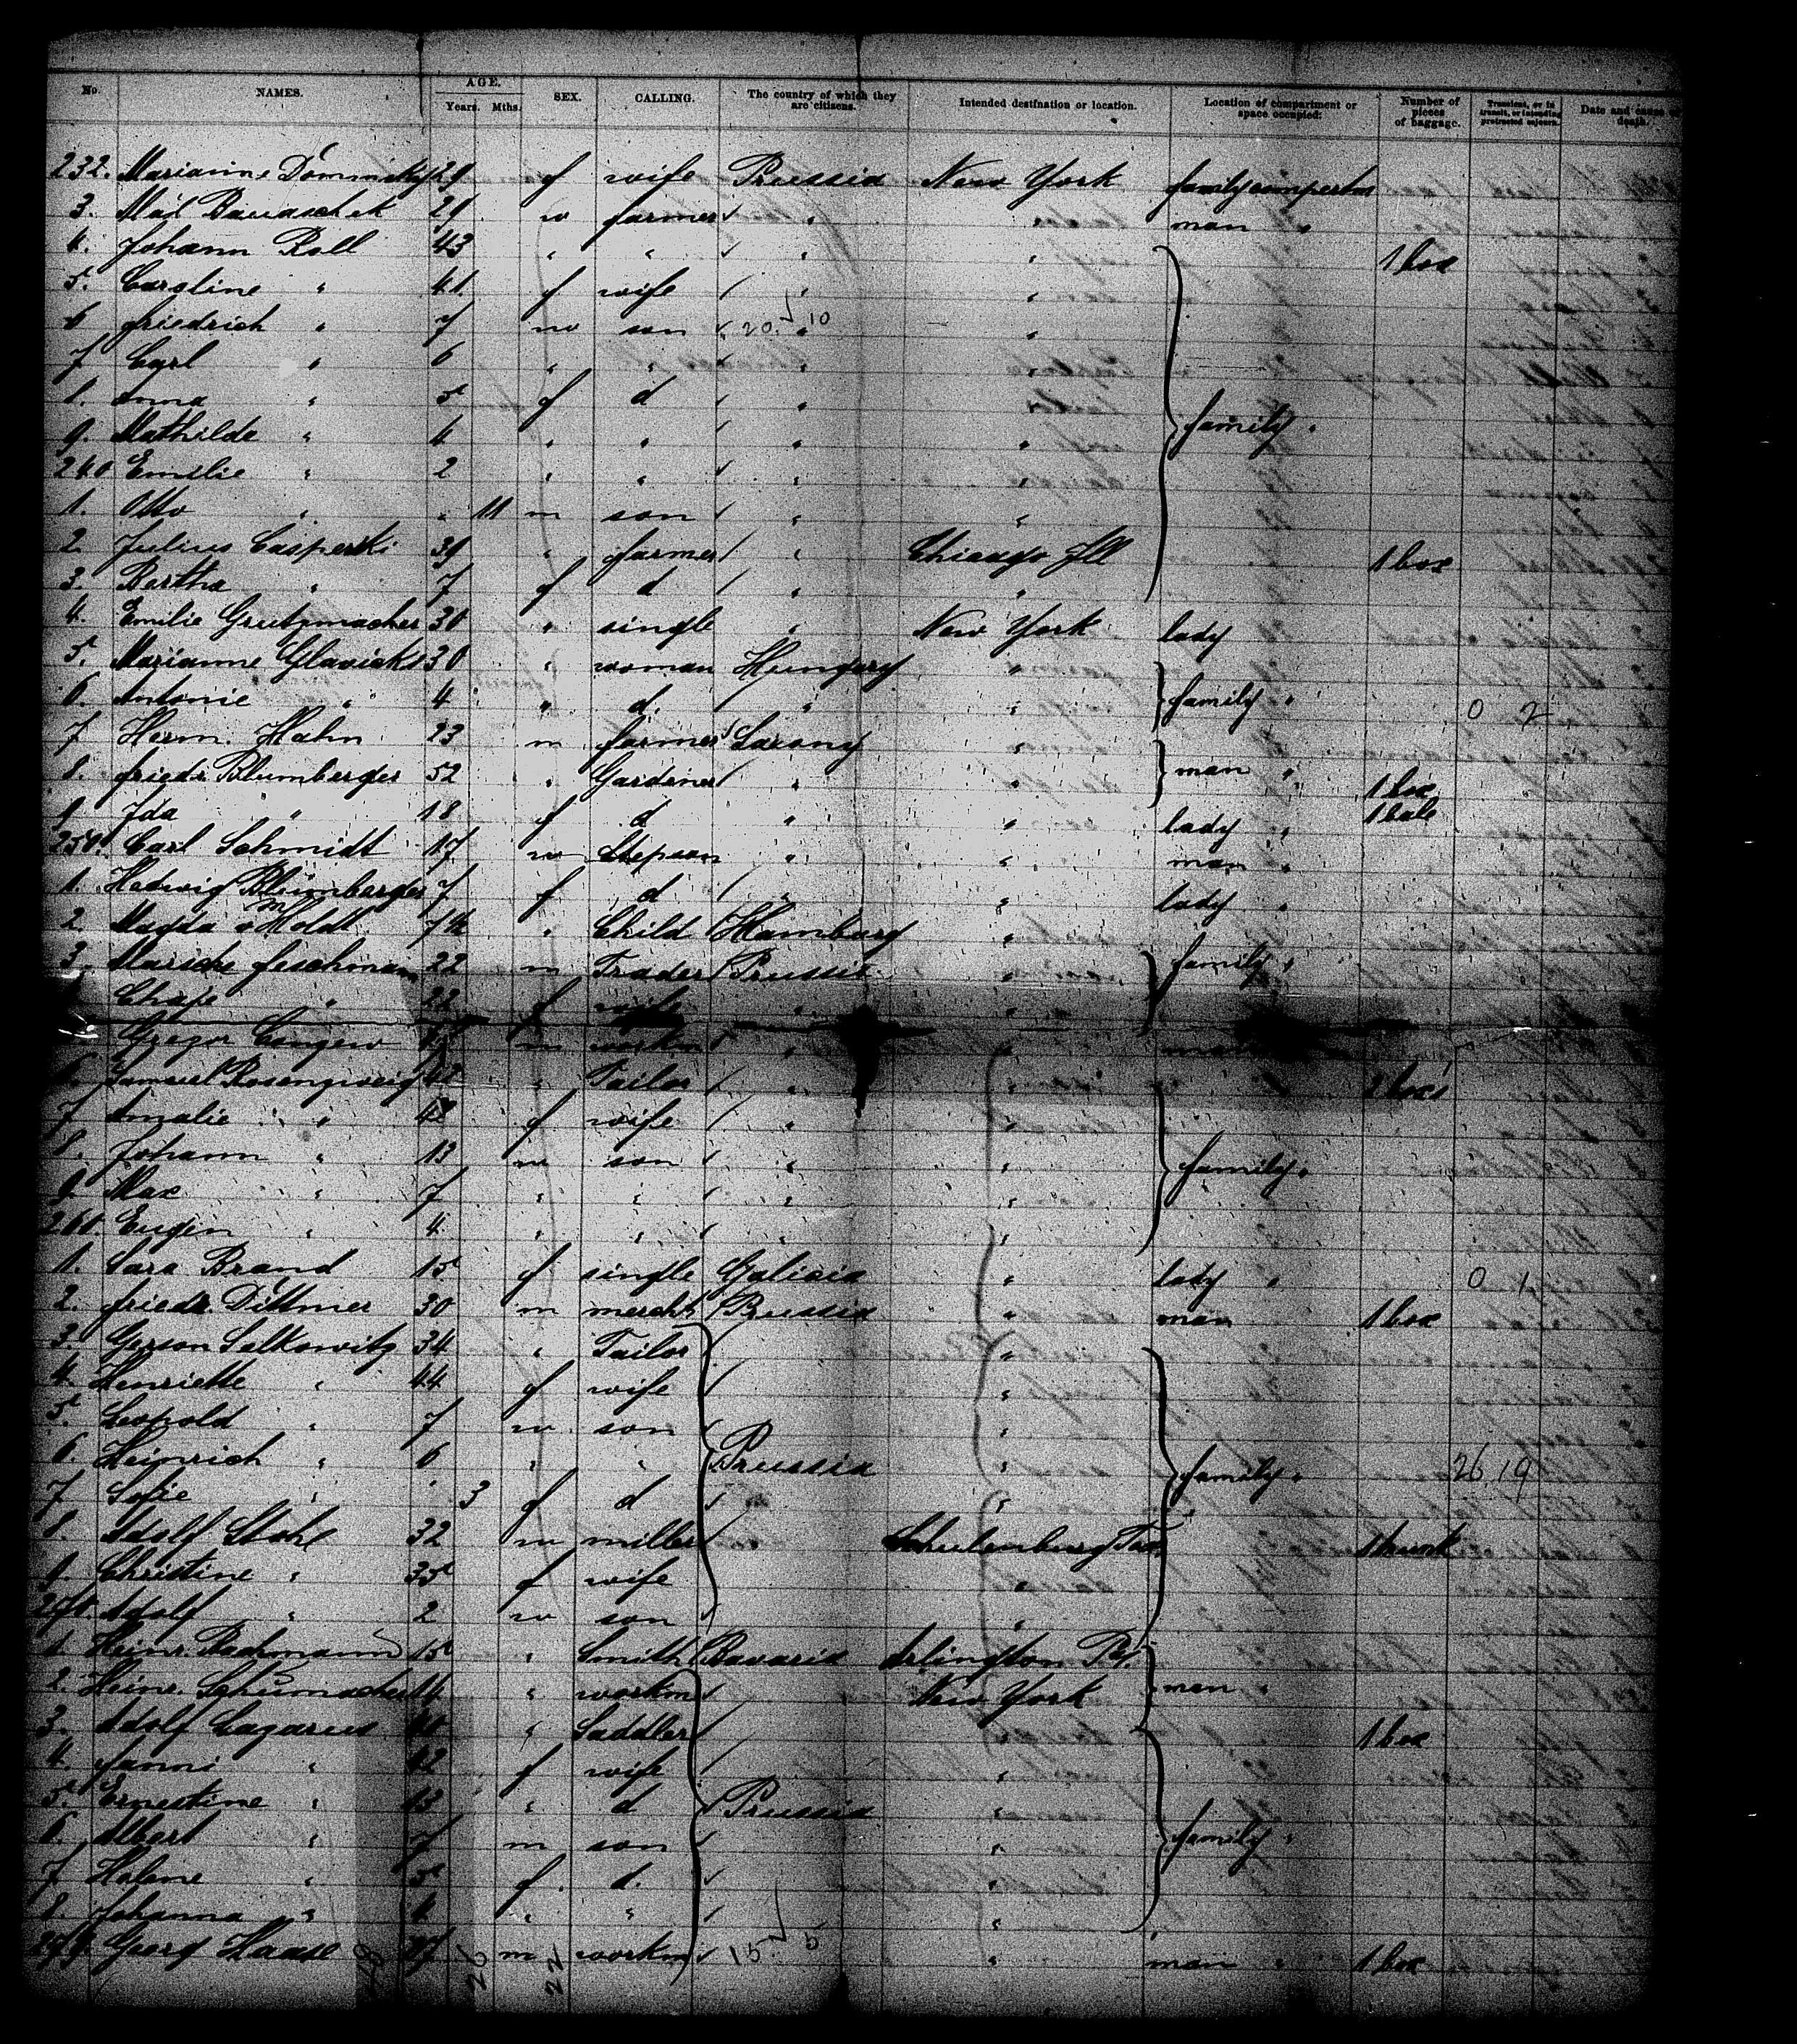 No. NAMES. AGE. Years. Mths. SEX. CALLING. The country of which they are citizens. Intended destination or location. Location of compartment or space occupied: Number of pieces of baggage. Transient, or in transit, or intending protracted sojourn. Date and cause of death.
232. Marianne Dominsky 29 f wife Prussia New York family compartm
3. 29 m farmer " " man "
4. Johann Roll 43 " " " " 1 box
5. Caroline " 41 f wife " "
6 Friedrich " 7 m son 20 10 " "
7 Carl " 6 " " " "
8. Anna " 5 f d " "
9. Mathilde " 4 " " " " family "
240 Emilie " 2 " " " "
1. Otto " " 11 m son " "
2. Julius Casperski 39 " farmer " Chicago Ill 1 box
3. Bertha " 7 f d " "
4. Emilie Grutzmacher 30 " single " New York lady
5. Marianne 30 " woman Hungary "
6. Antonie " 4 " d. " " family " 0 2
7 Herm. Hahn 23 m farmer Saxony "
8. Friedr. Blumberger 52 " Gardener " " man " 1 box
9 Ida " 18 f d " " lady " 1 bale
250. Carl Schmidt 17 m Stepson " " man "
1. Hedwig Blumberger 7 f d " " lady "
2. Magda v Holdt " Child Hamburg "
3. 22 m Trader Prussia " family "
" 22 f wife " "
Gregor m workm " " man
Samuel Rosenzweig 42 " Tailor " " 2 box
7 Amalie " 48 f wife " "
8. Johann " 13 m son " " family "
9. Max " 7 " " " "
260. Eugen " 4 " " " "
1. Sara Brand 15 f single Galicia " lady " 0 1
2. Friedr. Dittmer 30 m mercht Prussia " man 1 box
3. Gerson Selkowitz 34 " Tailor "
4. Henriette " 44 f wife "
5. Leopold " 7 m son "
6. Heinrich " 6 " " Prussia " family " 26 19
7 Sofie " " 3 f d "
8. Adolf Stahl 32 m miller Schulenburg Tex. 1 trunk
9. Christine " 35 f wife "
270. Adolf " 2 m son "
1. Heinr. Bachmann 15 " Smith Bavaria Arlington
2. Heinr. Schumacher " workm New York man "
3. Adolf Lazarus 40 " Saddler " 1 box
4. Fanni " 42 f wife "
5. Ernestine " 13 " d Prussia "
6. Albert " 7 m son " family "
7 Helene " 5 f d. "
8 Johanna " 4 " " "
279. Georg Haase 27 m workm 15 5 " man " 1 box
26 22